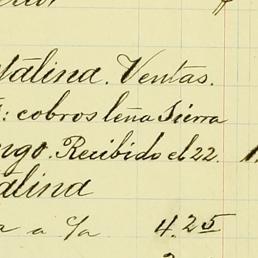 talina. Ventas.
: cobros leña Sierra
ngo. Recibido el 22.
talina
a a c/a 4.25